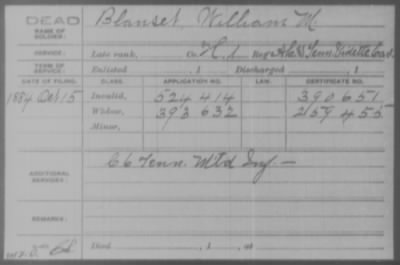 DEAD
NAME OF SOLDIER: Blanset, William M.
SERVICE: Late rank, Co. H, 1 Reg't Ala & Tenn. Vidette Cav.
TERM OF SERVICE: Enlisted , 1 Discharged , 1
DATE OF FILING. CLASS. APPLICATION NO. LAW. CERTIFICATE NO.
1884 Oct 15 Invalid, 524 414 390 651
Widow, 393 632 259 455
Minor,
ADDITIONAL SERVICES: C 6 Tenn. Mtd Inf. —
REMARKS:
Died , 1 , at